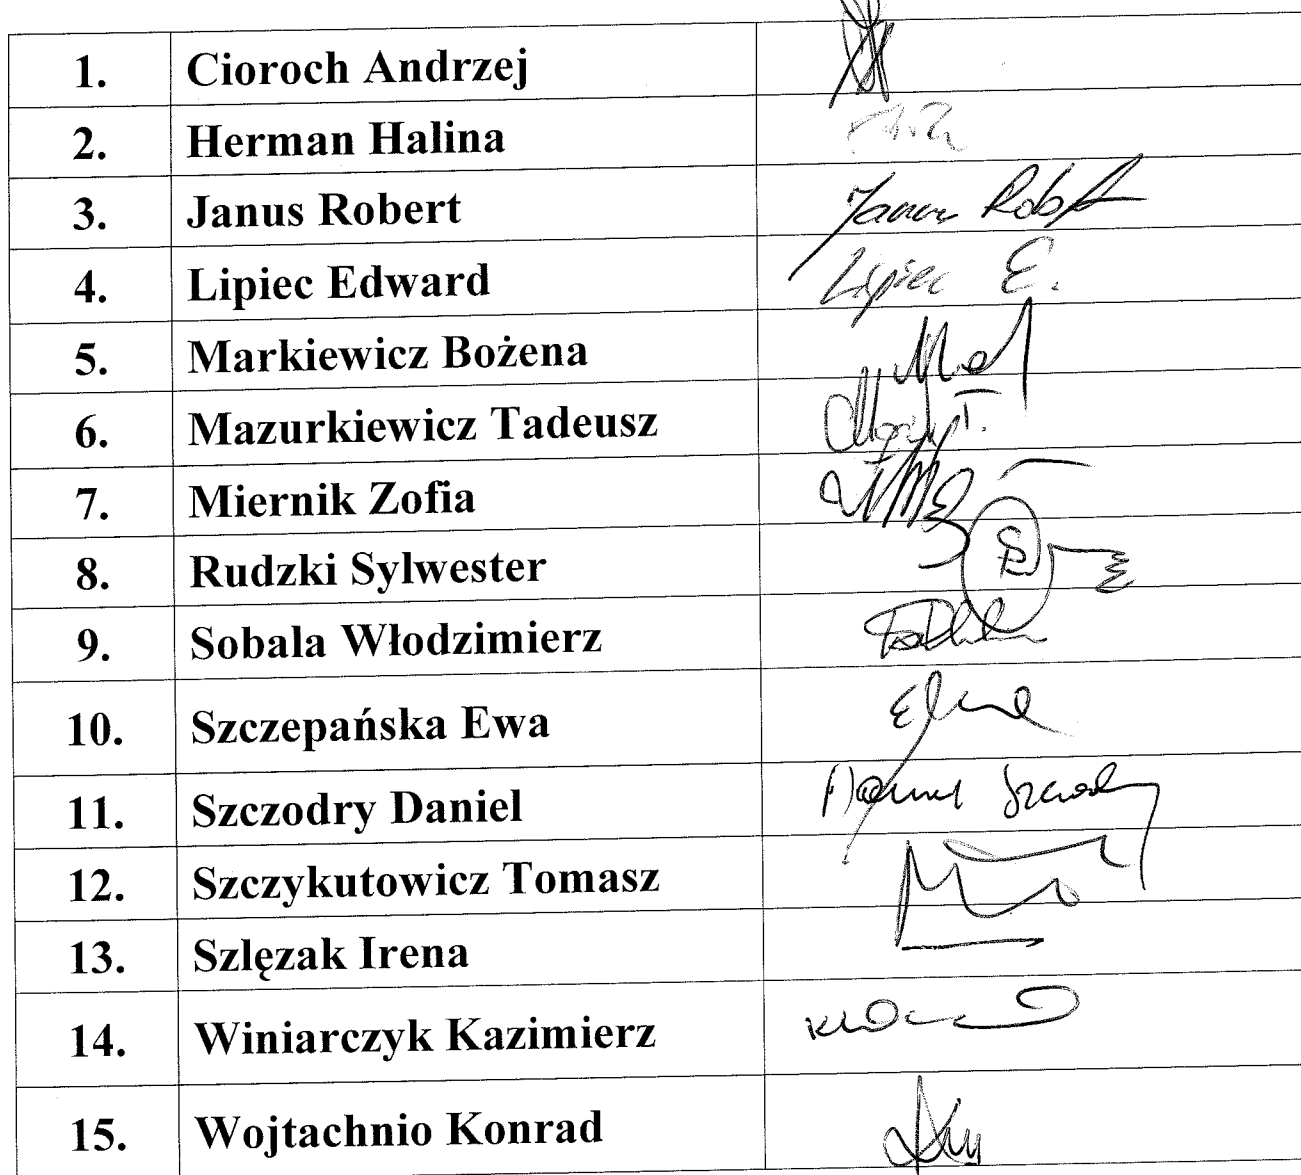 1. Cioroch Andrzej
2. Herman Halina
3. Janus Robert Janus Robert
4. Lipiec Edward Lipiec E.
5. Markiewicz Bożena
6. Mazurkiewicz Tadeusz
7. Miernik Zofia
8. Rudzki Sylwester
9. Sobala Włodzimierz
10. Szczepańska Ewa
11. Szczodry Daniel Daniel Szczodry
12. Szczykutowicz Tomasz
13. Szlęzak Irena
14. Winiarczyk Kazimierz
15. Wojtachnio Konrad